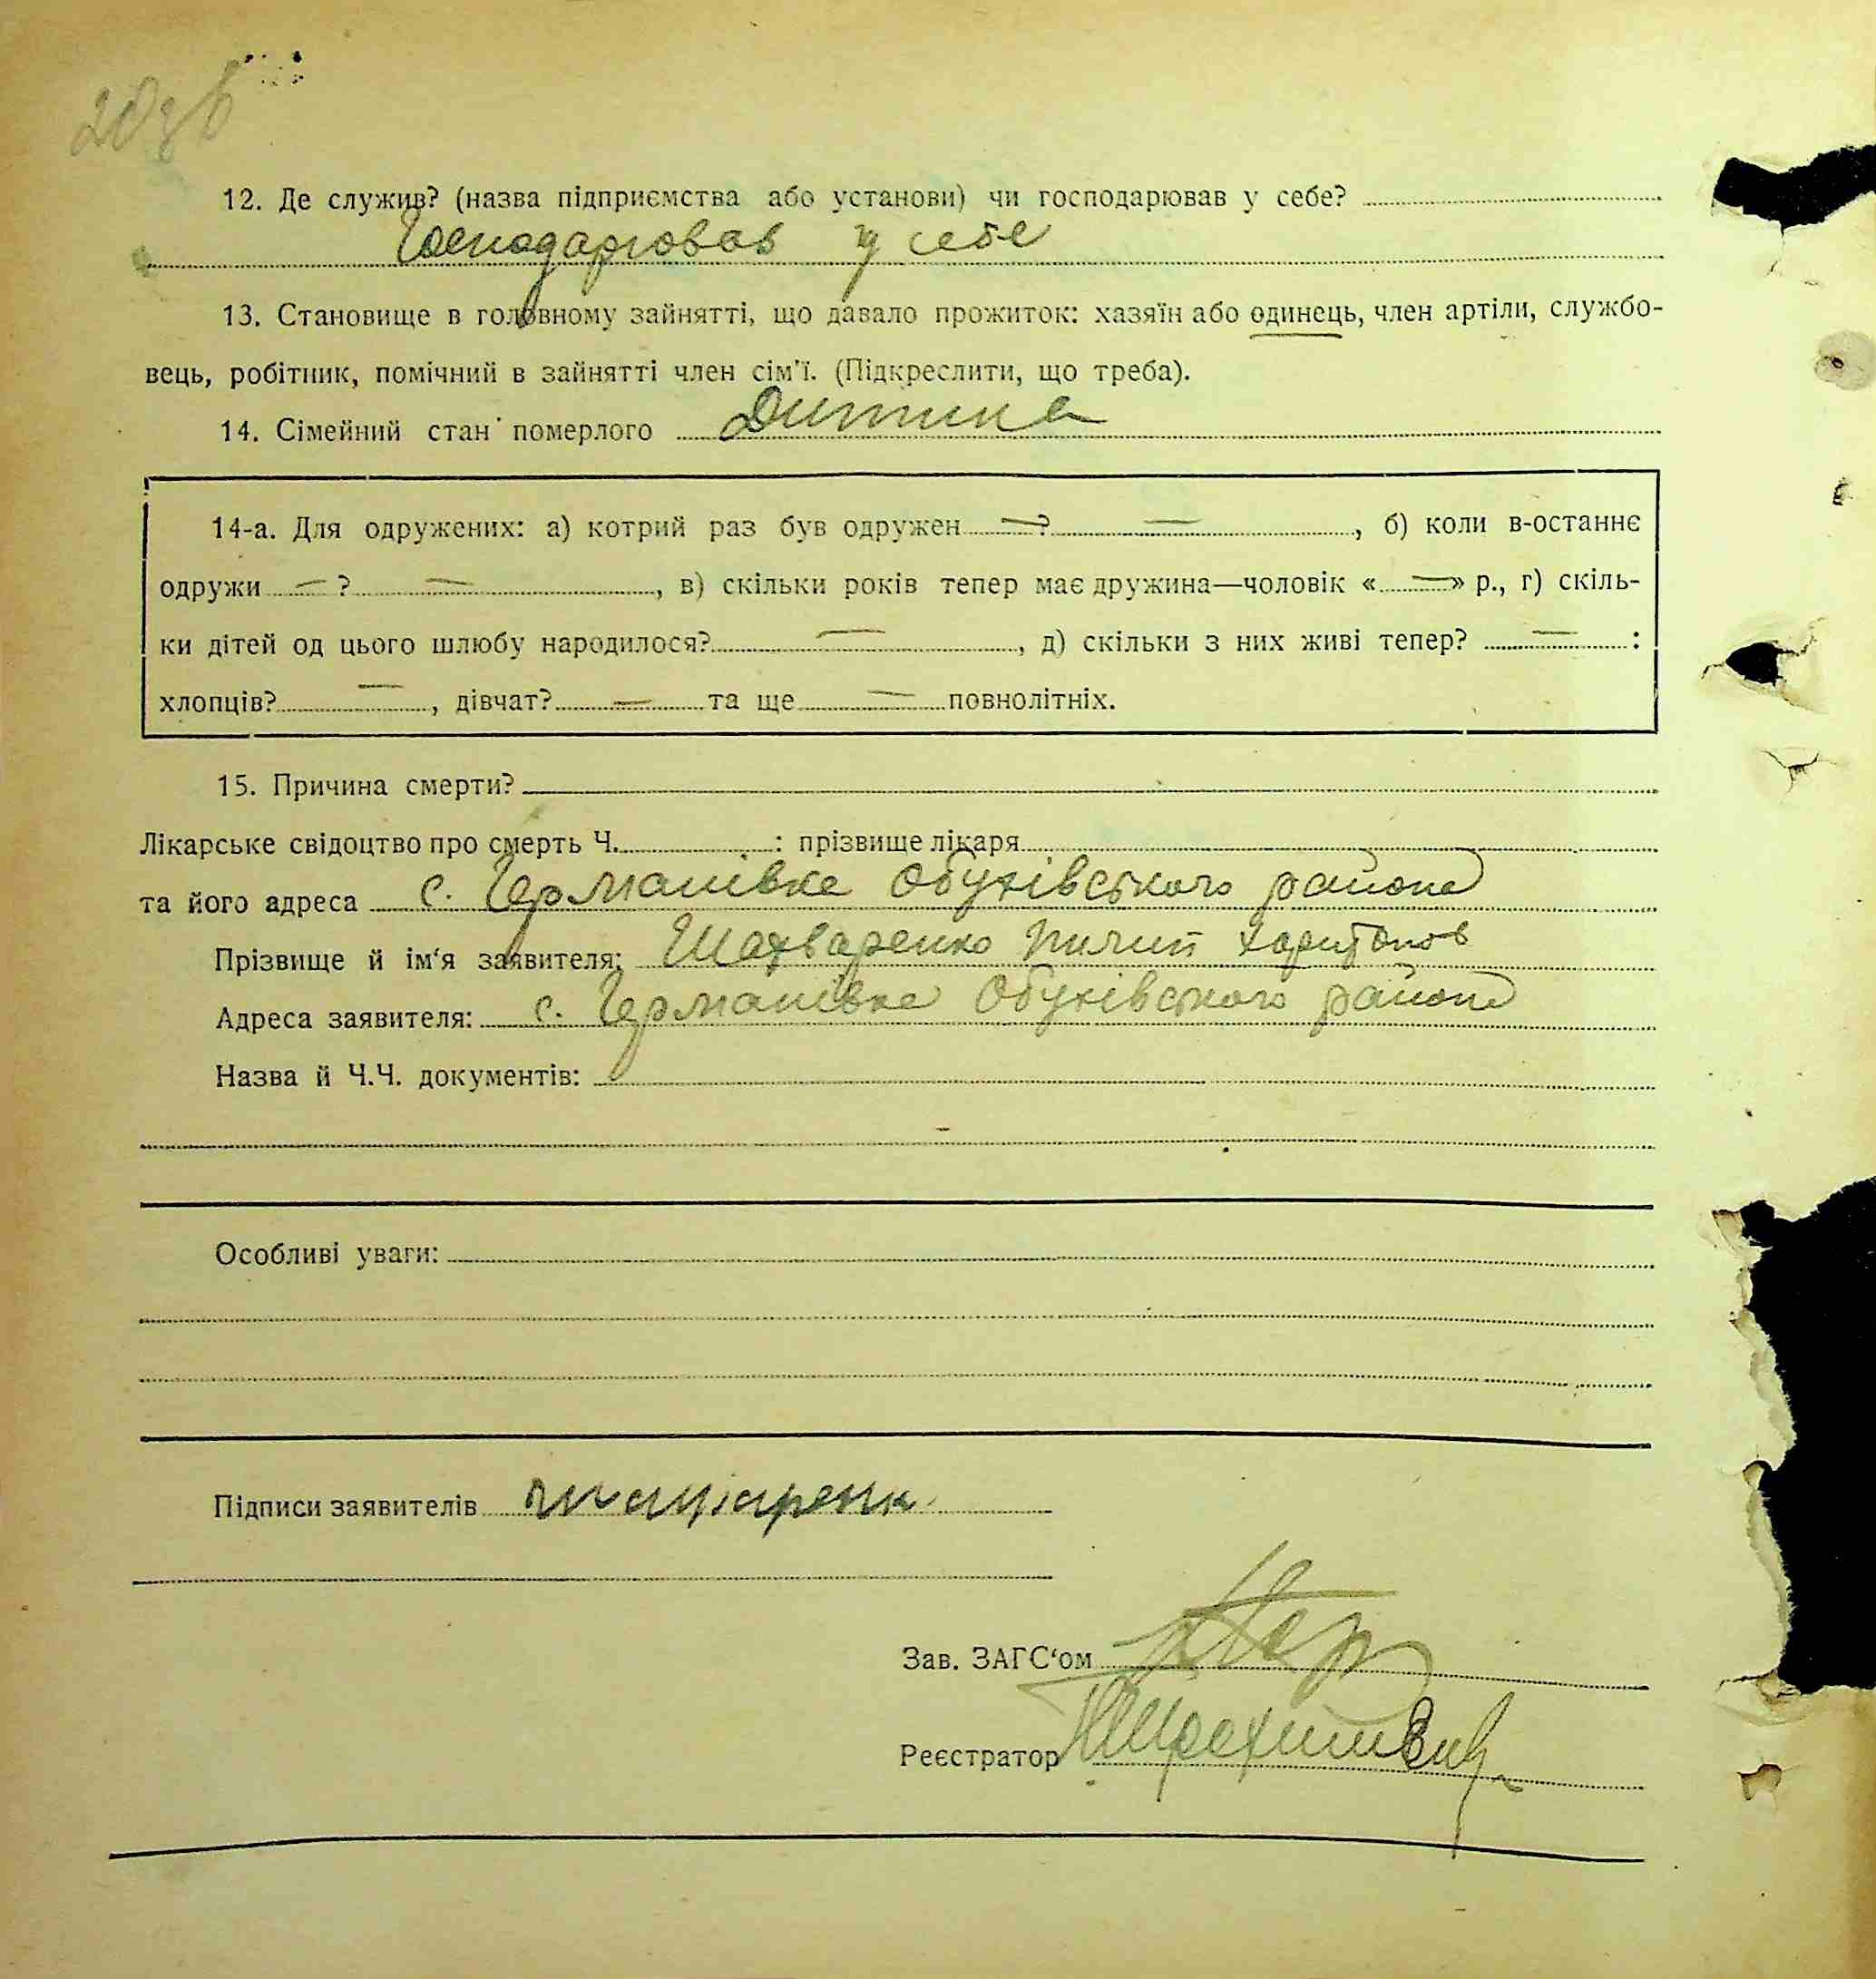 203в
12. Де служив? (назва підприємства або установи) чи господарював у себе?
Господарював у себе
13. Становище в головному зайнятті, що давало прожиток: хазяїн або одинець, член артіли, службо-
вець, робітник, помічний в зайнятті член сім'ї. (Підкреслити, що треба).
14. Сімейний стан померлого Дитина
14-а. Для одружених: а) котрий раз був одружен — ? —, б) коли в-останнє
одружи — ? —, в) скільки років тепер має дружина—чоловік « — » р., г) скіль-
ки дітей од цього шлюбу народилося? —, д) скільки з них живі тепер? — :
хлопців? —, дівчат? — та ще — повнолітніх.
15. Причина смерти?
Лікарське свідоцтво про смерть Ч. : прізвище лікаря
та його адреса с. Германівка Обухівського района
Прізвище й ім'я заявителя: Пилип Харитонов
Адреса заявителя: с. Германівка Обухівського района
Назва й Ч.Ч. документів:
Особливі уваги:
Підписи заявителів
Зав. ЗАГС'ом
Реєстратор